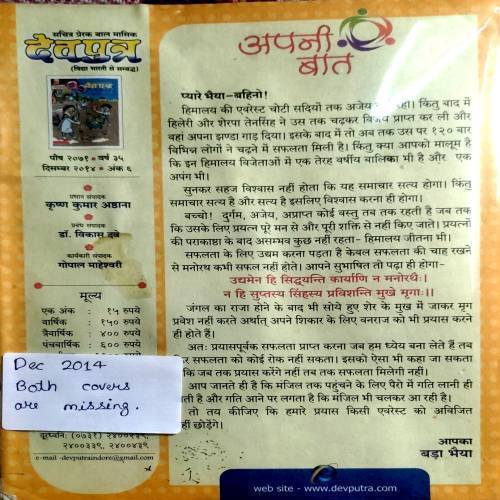 सचित्र प्रेरक बाल मासिक
देवपुत्र
(विद्या भारती से सम्बद्ध)
पौष २०७१ • वर्ष ३५
दिसम्बर २०१४ • अंक ६
प्रधान संपादक
कृष्ण कुमार अष्ठाना
प्रबंध संपादक
डॉ. विकास दवे
कार्यकारी संपादक
गोपाल माहेश्वरी
मूल्य
एक अंक : १५ रुपये
वार्षिक : १५० रुपये
त्रैवार्षिक : ४०० रुपये
पंचवार्षिक : ६०० रुपये
Dec 2014
Both covers
are missing.
दूरध्वनि: (०७३१) २४००४३९,
२४००३३९, २४००४३९
e-mail -devputraindore@gmail.com
अपनी
बात
प्यारे भैया-बहिनो!
हिमालय की एवरेस्ट चोटी सदियों तक अजेय रही। किंतु बाद में
हिलेरी और शेरपा तेनसिंह ने उस तक चढ़कर विजय प्राप्त कर ली और
वहां अपना झण्डा गाड़ दिया। इसके बाद में तो अब तक उस पर १२० बार
विभिन्न लोगों ने चढ़ने में सफलता मिली है। किंतु क्या आपको मालूम है
कि इन हिमालय विजेताओं में एक तेरह वर्षीय बालिका भी है और एक
अपंग भी।
सुनकर सहज विश्वास नहीं होता कि यह समाचार सत्य होगा। किंतु
समाचार सत्य है और सत्य है इसलिए विश्वास करना ही होगा।
बच्चो! दुर्गम, अजेय, अप्राप्त कोई वस्तु तब तक रहती है जब तक
कि उसके लिए प्रयत्न पूरे मन से और पूरी शक्ति से नहीं किए जाते। प्रयत्नों
की पराकाष्ठा के बाद असम्भव कुछ नहीं रहता- हिमालय जीतना भी।
सफलता के लिए उद्यम करना पड़ता है केवल सफलता की चाह रखने
से मनोरथ कभी सफल नहीं होते। आपने सुभाषित तो पढ़ा ही होगा-
उद्यमेन हि सिद्धयन्ति कार्याणि न मनोरथै:।
न हि सुप्तस्य सिंहस्य प्रविशन्ति मुखे मृगा:।।
जंगल का राजा होने के बाद भी सोये हुए शेर के मुख में जाकर मृग
प्रवेश नहीं करते अर्थात् अपने शिकार के लिए वनराज को भी प्रयास करने
ही होते हैं।
अत: प्रयासपूर्वक सफलता प्राप्त करना जब हम ध्येय बना लेते हैं तब
सफलता को कोई रोक नहीं सकता। इसको ऐसा भी कहा जा सकता
कि जब तक प्रयास करेंगे नहीं तब तक सफलता मिलेगी नहीं।
आप जानते ही है कि मंजिल तक पहुंचने के लिए पैरों में गति लानी ही
है और गति आने पर लगता है कि मंजिल भी चलकर आ रही है।
तो तय कीजिए कि हमारे प्रयास किसी एवरेस्ट को अविजित
नहीं छोड़ेंगे।
आपका
बड़ा भैया
web site - www.devputra.com